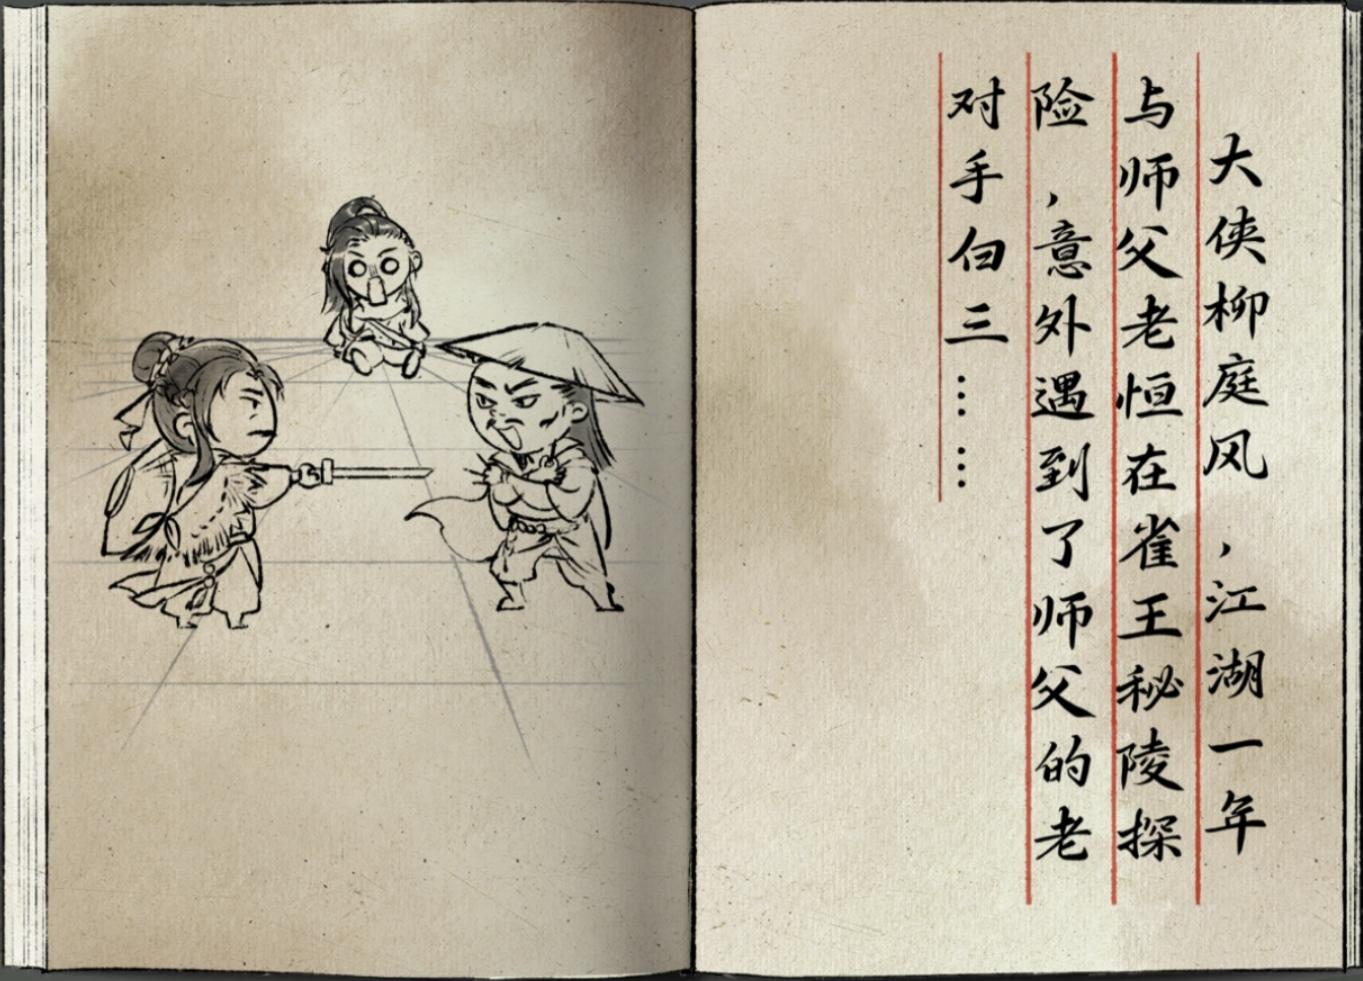 大侠柳庭风，江湖一年
与师父老恒在雀王秘陵探
险，意外遇到了师父的老
对手白三……